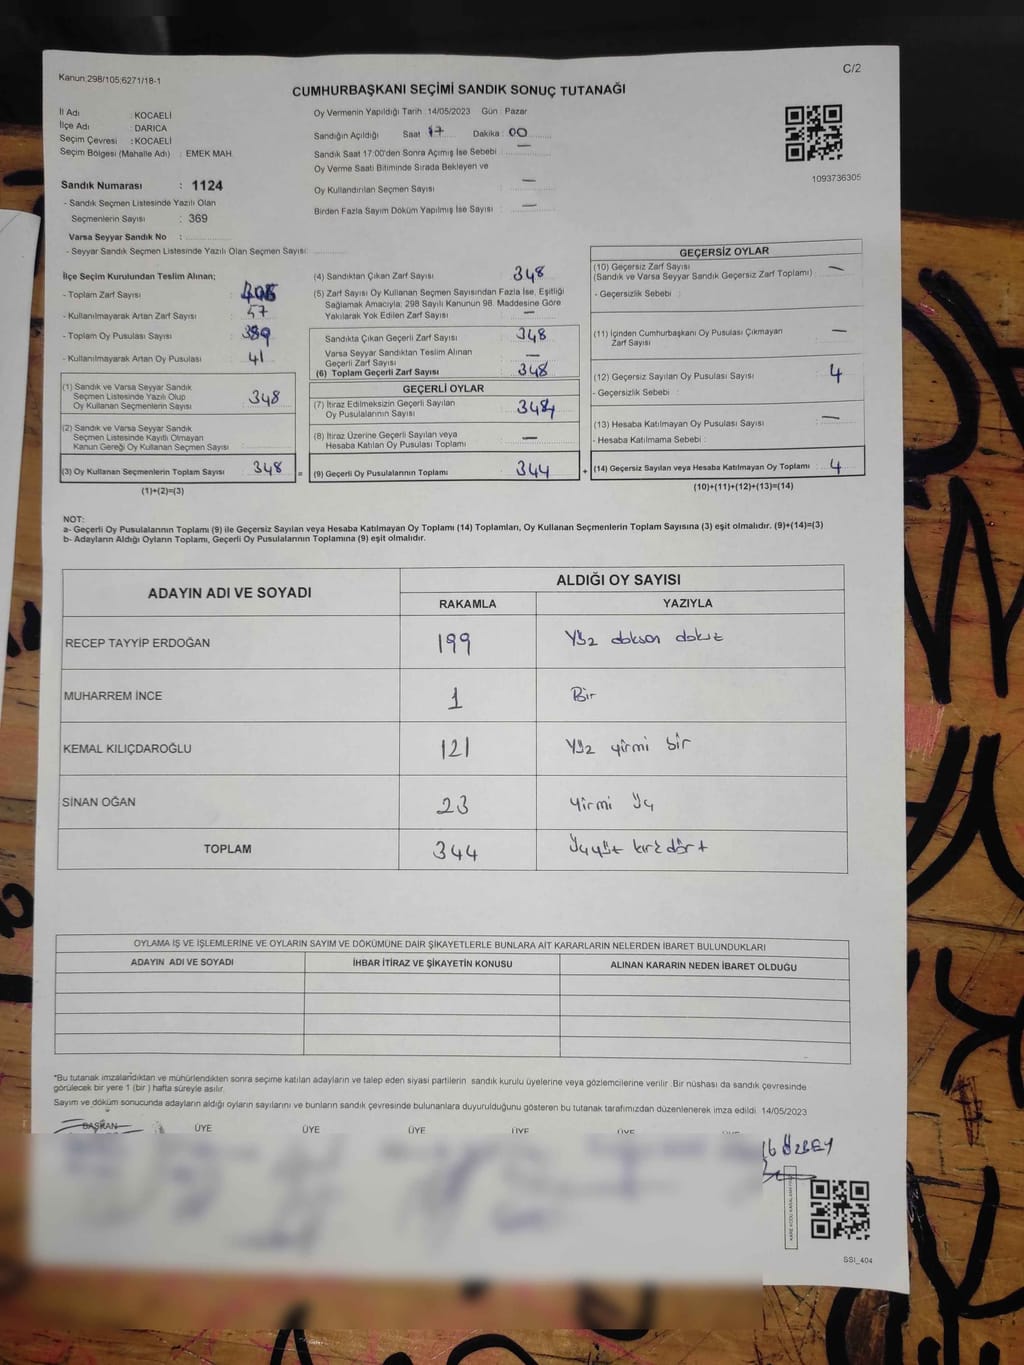 Kanun:298/105,6271/18-1
C/2
CUMHURBAŞKANI SEÇİMİ SANDIK SONUÇ TUTANAĞI
İl Adı : KOCAELİ
İlçe Adı : DARICA
Seçim Çevresi : KOCAELİ
Seçim Bölgesi (Mahalle Adı) : EMEK MAH.
Sandık Numarası : 1124
- Sandık Seçmen Listesinde Yazılı Olan
Seçmenlerin Sayısı : 369
Varsa Seyyar Sandık No :
- Seyyar Sandık Seçmen Listesinde Yazılı Olan Seçmen Sayısı:
Oy Vermenin Yapıldığı Tarih : 14/05/2023 Gün : Pazar
Sandığın Açıldığı Saat : 17 Dakika : 00
Sandık Saat 17:00'den Sonra Açımış İse Sebebi : —
Oy Verme Saati Bitiminde Sırada Bekleyen ve
Oy Kullandırılan Seçmen Sayısı : —
Birden Fazla Sayım Döküm Yapılmış İse Sayısı : —
1093736305
İlçe Seçim Kurulundan Teslim Alınan;
- Toplam Zarf Sayısı :
- Kullanılmayarak Artan Zarf Sayısı : 57
- Toplam Oy Pusulası Sayısı : 389
- Kullanılmayarak Artan Oy Pusulası : 41
(1) Sandık ve Varsa Seyyar Sandık
Seçmen Listesinde Yazılı Olup
Oy Kullanan Seçmenlerin Sayısı : 348
(2) Sandık ve Varsa Seyyar Sandık
Seçmen Listesinde Kayıtlı Olmayan
Kanun Gereği Oy Kullanan Seçmen Sayısı :
(3) Oy Kullanan Seçmenlerin Toplam Sayısı : 348
(1)+(2)=(3)
(4) Sandıktan Çıkan Zarf Sayısı : 348
(5) Zarf Sayısı Oy Kullanan Seçmen Sayısından Fazla İse, Eşitliği
Sağlamak Amacıyla; 298 Sayılı Kanunun 98. Maddesine Göre
Yakılarak Yok Edilen Zarf Sayısı : —
Sandıkta Çıkan Geçerli Zarf Sayısı : 348
Varsa Seyyar Sandıktan Teslim Alınan
Geçerli Zarf Sayısı : —
(6) Toplam Geçerli Zarf Sayısı : 348
GEÇERLİ OYLAR
(7) İtiraz Edilmeksizin Geçerli Sayılan
Oy Pusulalarının Sayısı : 344
(8) İtiraz Üzerine Geçerli Sayılan veya
Hesaba Katılan Oy Pusulası Toplamı : —
= (9) Geçerli Oy Pusulalarının Toplamı : 344
GEÇERSİZ OYLAR
(10) Geçersiz Zarf Sayısı
(Sandık ve Varsa Seyyar Sandık Geçersiz Zarf Toplamı) : —
- Geçersizlik Sebebi :
(11) İçinden Cumhurbaşkanı Oy Pusulası Çıkmayan
Zarf Sayısı : —
(12) Geçersiz Sayılan Oy Pusulası Sayısı : 4
- Geçersizlik Sebebi :
(13) Hesaba Katılmayan Oy Pusulası Sayısı : —
- Hesaba Katılmama Sebebi :
+ (14) Geçersiz Sayılan veya Hesaba Katılmayan Oy Toplamı : 4
(10)+(11)+(12)+(13)=(14)
NOT:
a- Geçerli Oy Pusulalarının Toplamı (9) ile Geçersiz Sayılan veya Hesaba Katılmayan Oy Toplamı (14) Toplamları, Oy Kullanan Seçmenlerin Toplam Sayısına (3) eşit olmalıdır. (9)+(14)=(3)
b- Adayların Aldığı Oyların Toplamı, Geçerli Oy Pusulalarının Toplamına (9) eşit olmalıdır.
ADAYIN ADI VE SOYADI
ALDIĞI OY SAYISI
RAKAMLA YAZIYLA
RECEP TAYYİP ERDOĞAN 199 Yüz doksan dokuz
MUHARREM İNCE 1 Bir
KEMAL KILIÇDAROĞLU 121 Yüz yirmi bir
SİNAN OĞAN 23 Yirmi üç
TOPLAM 344 Üçyüz kırk dört
OYLAMA İŞ VE İŞLEMLERİNE VE OYLARIN SAYIM VE DÖKÜMÜNE DAİR ŞİKAYETLERLE BUNLARA AİT KARARLARIN NELERDEN İBARET BULUNDUKLARI
ADAYIN ADI VE SOYADI İHBAR İTİRAZ VE ŞİKAYETİN KONUSU ALINAN KARARIN NEDEN İBARET OLDUĞU
*Bu tutanak imzalandıktan ve mühürlendikten sonra seçime katılan adayların ve talep eden siyasi partilerin sandık kurulu üyelerine veya gözlemcilerine verilir. Bir nüshası da sandık çevresinde
görülecek bir yere 1 (bir ) hafta süreyle asılır.
Sayım ve döküm sonucunda adayların aldığı oyların sayılarını ve bunların sandık çevresinde bulunanlara duyurulduğunu gösteren bu tutanak tarafımızdan düzenlenerek imza edildi. 14/05/2023
BAŞKAN ÜYE ÜYE ÜYE ÜYE ÜYE
SSI_404